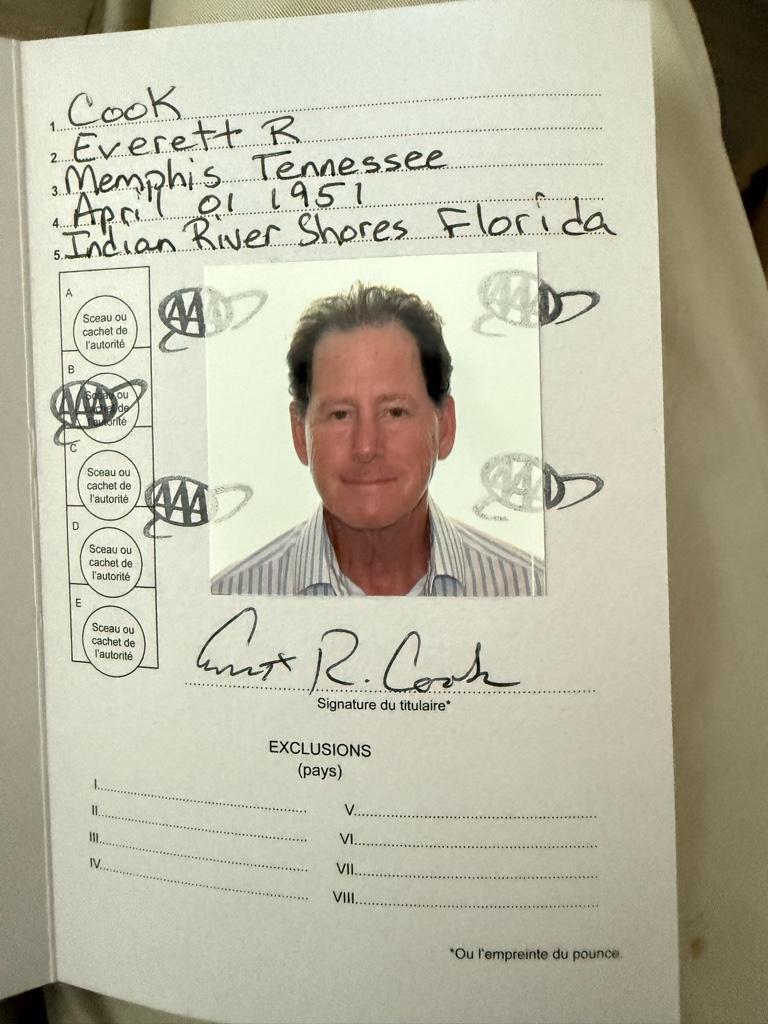 1. Cook
2. Everett R
3. Memphis Tennessee
4. April 01 1951
5. Indian River Shores Florida
A
Sceau ou
cachet de
l'autorité
AAA
AAA
B
Sceau ou
cachet de
l'autorité
AAA
C
Sceau ou
cachet de
l'autorité
AAA
AAA
D
Sceau ou
cachet de
l'autorité
E
Sceau ou
cachet de
l'autorité
Everett R. Cook
Signature du titulaire*
EXCLUSIONS
(pays)
I.
II.
III.
IV.
V.
VI.
VII.
VIII.
*Ou l'empreinte du pounce.